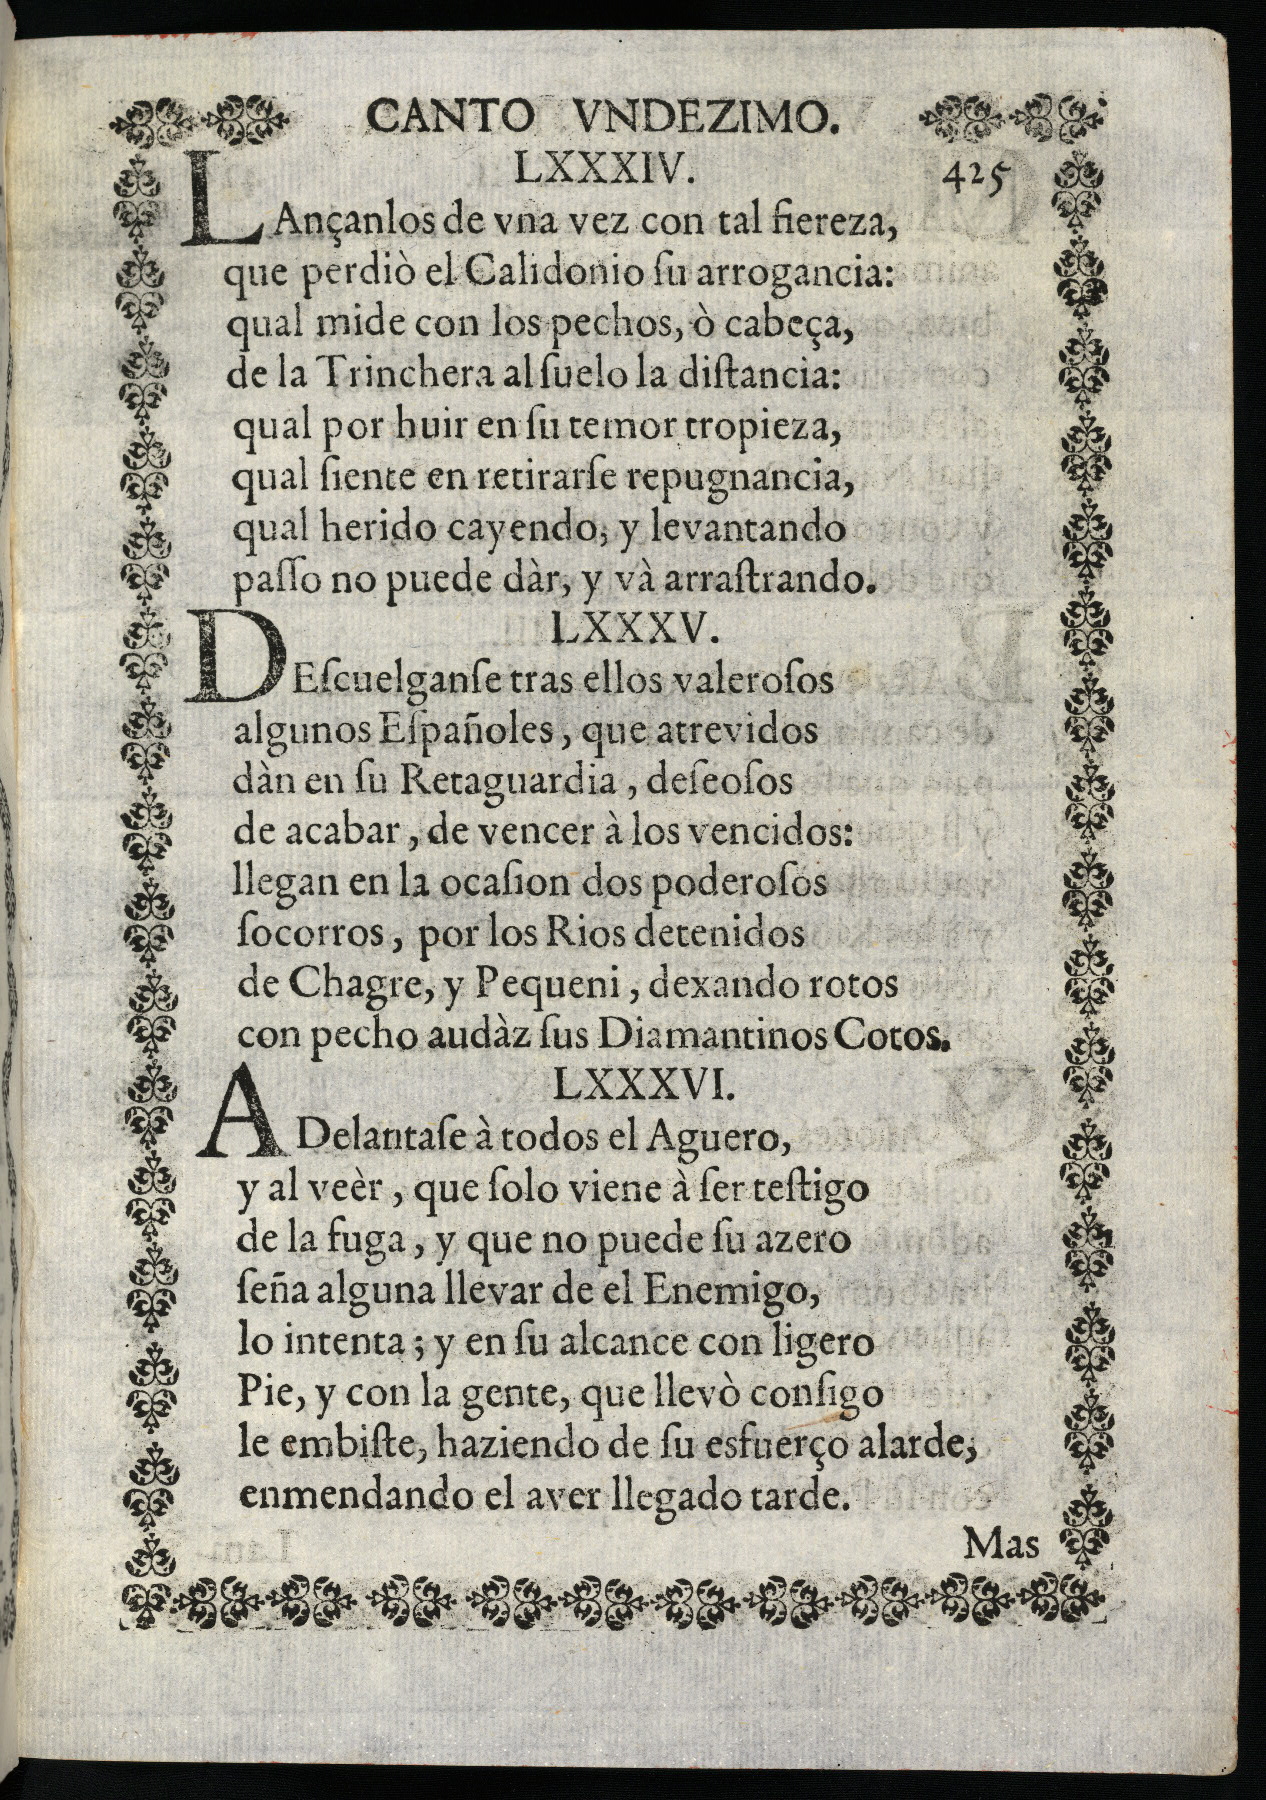 CANTO VNDEZIMO.
LXXXIV.
425
LAnçanlos de vna vez con tal fiereza,
que perdiò el Calidonio ſu arrogancia:
qual mide con los pechos, ò cabeça,
de la Trinchera al ſuelo la diſtancia:
qual por huir en ſu temor tropieza,
qual ſiente en retirarſe repugnancia,
qual herido cayendo, y levantando
paſſo no puede dàr, y và arraſtrando.
LXXXV.
DEſcuelganſe tras ellos valeroſos
algunos Eſpañoles, que atrevidos
dàn en ſu Retaguardia, deſeoſos
de acabar, de vencer à los vencidos:
llegan en la ocaſion dos poderoſos
ſocorros, por los Rios detenidos
de Chagre, y Pequeni, dexando rotos
con pecho audàz ſus Diamantinos Cotos.
LXXXVI.
ADelantaſe à todos el Aguero,
y al veèr, que ſolo viene à ſer teſtigo
de la fuga, y que no puede ſu azero
ſeña alguna llevar de el Enemigo,
lo intenta; y en ſu alcance con ligero
Pie, y con la gente, que llevò conſigo
le embiſte, haziendo de ſu esfuerço alarde,
enmendando el aver llegado tarde.
Mas